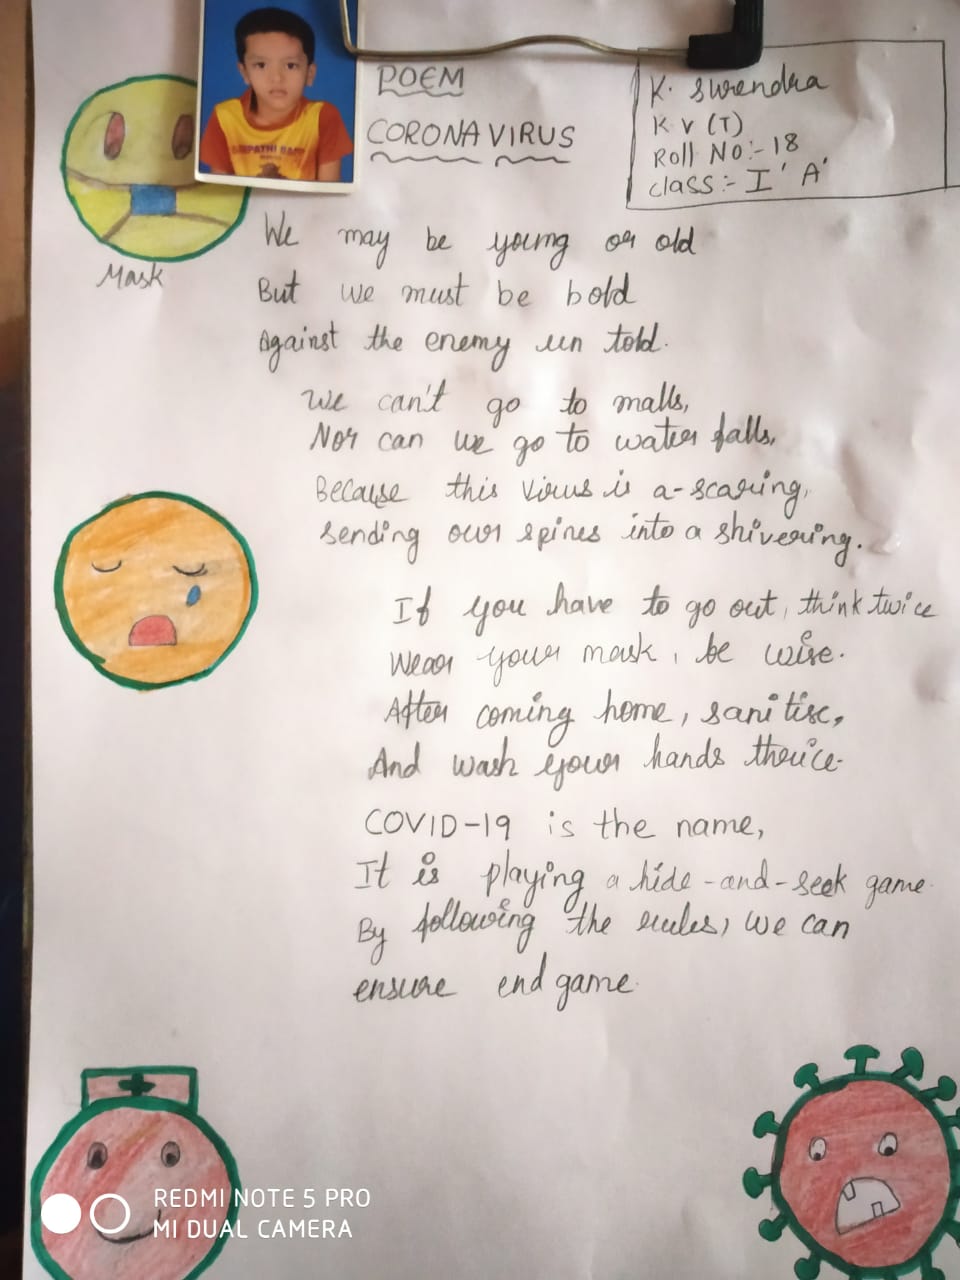 POEM
CORONA VIRUS
K. Surendra
K V (T)
Roll No:- 18
class:- I 'A'
Mask
We may be young or old
But we must be bold
Against the enemy un told.
We can't go to malls,
Nor can we go to water falls,
Because this virus is a-scaring,
sending our spines into a shivering.
If you have to go out, think twice
Wear your mask, be wise.
After coming home, sanitise,
And wash your hands thrice.
COVID-19 is the name,
It is playing a hide-and-seek game.
By following the rules, we can
ensure end game.
REDMI NOTE 5 PRO
MI DUAL CAMERA